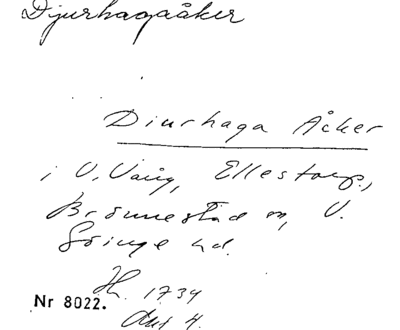 Djurhagaåker
Diurhaga Åker
i V. Vång, Ellestorp,
Brönnestad sn, V.
Göinge hd.
Hh. 1734
Nr 8022.
Akt 4.